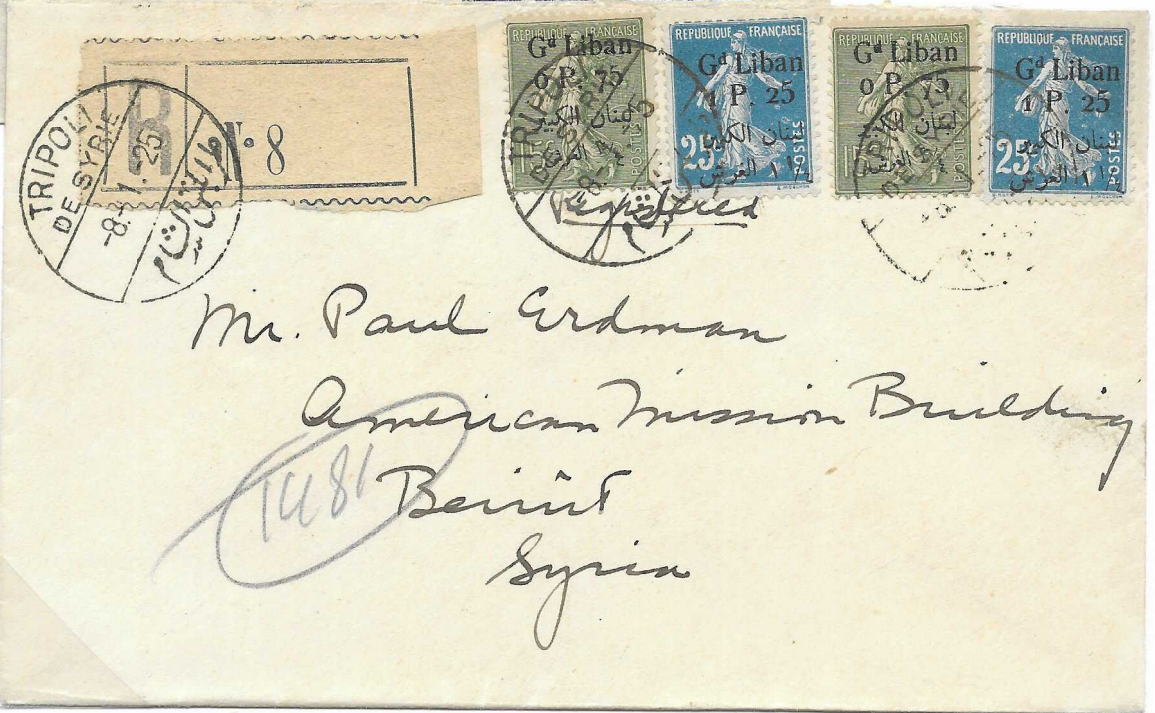 R
N° 8
TRIPOLI
DE SYRIE
-8-1.25
طرابلس الشام
REPUBLIQUE FRANÇAISE
Gd Liban
0 P. 75
لبنان الكبير
POSTES
REPUBLIQUE FRANÇAISE
Gd Liban
1 P. 25
لبنان الكبير
25c
POSTES
REPUBLIQUE FRANÇAISE
Gd Liban
0 P. 75
لبنان الكبير
POSTES
REPUBLIQUE FRANÇAISE
Gd Liban
1 P. 25
لبنان الكبير
25c
POSTES
TRIPOLI
DE SYRIE
Registered
Mr. Paul Erdman
American Mission Building
Beirût
Syria
1481